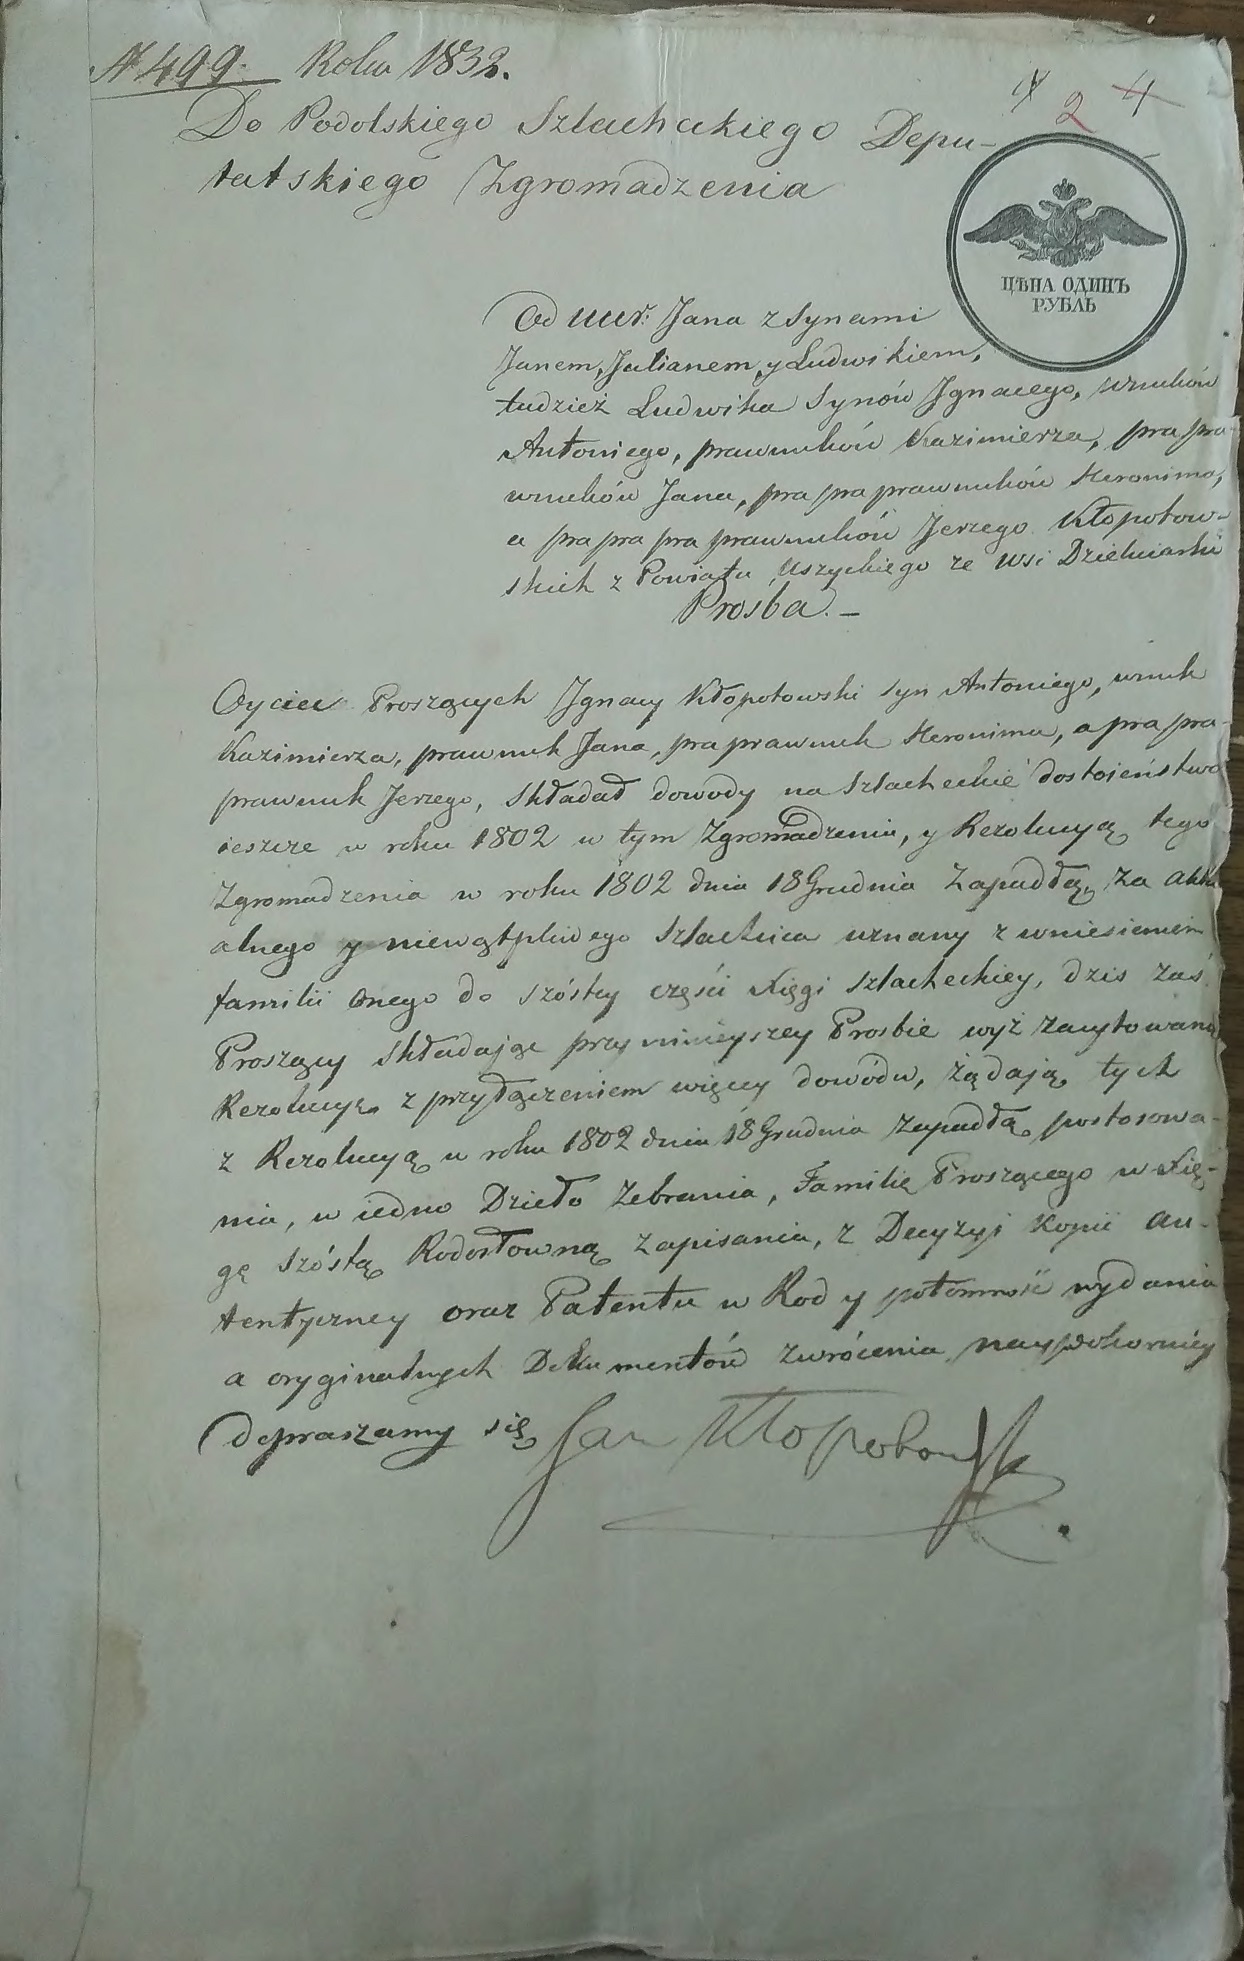 № 499. Roku 1832.
4 2 4
Do Podolskiego Szlacheckiego Depu-
tatskiego Zgromadzenia
ЦѢНА ОДИНЪ
РУБЛЬ
Od uur: Jana z Synami
Janem, Julianem, y Ludwikiem,
tudzież Ludwika Synów Ignacego, wnuków
Antoniego, prawnuków Kazimierza, pra pra-
wnuków Jana, pra pra prawnuków Heronima,
a pra pra pra prawnuków Jerzego Kłopotow-
skich z Powiatu Uszyckiego ze wsi
Prośba. –
Oyciec Proszących Ignacy Kłopotowski syn Antoniego, wnuk
Kazimierza, prawnuk Jana, pra prawnuk Heronima, a pra pra-
prawnuk Jerzego, składał dowody na szlacheckie dostoieństwo
ieszcze w roku 1802 w tym Zgromadzeniu, y Rezolucyą tego
Zgromadzenia w roku 1802 dnia 18 Grudnia zapadłą, za aktu
alnego y niewątpliwego szlachcica uznany z wniesieniem
familii onego do szóstey części xięgi szlacheckiey, dziś zaś
Proszący składaiąc przy ninieyszey Prosbie wyż zacytowaną
Rezolucyę z przyłączeniem więcey dowodów, żądaią tych
z Rezolucyą w roku 1802 dnia 18 Grudnia zapadłą postosowa-
nia, w iedno Dzieło zebrania, Familię Proszącego w xię-
gę szóstą Rodosłowną zapisania, z Decyzyi kopii au-
tentyczney oraz Patentu w Rod y potomność wydania
a oryginalnych Dokumentów zwrócenia naypokorniey
dopraszamy się Jan Kłopotowski